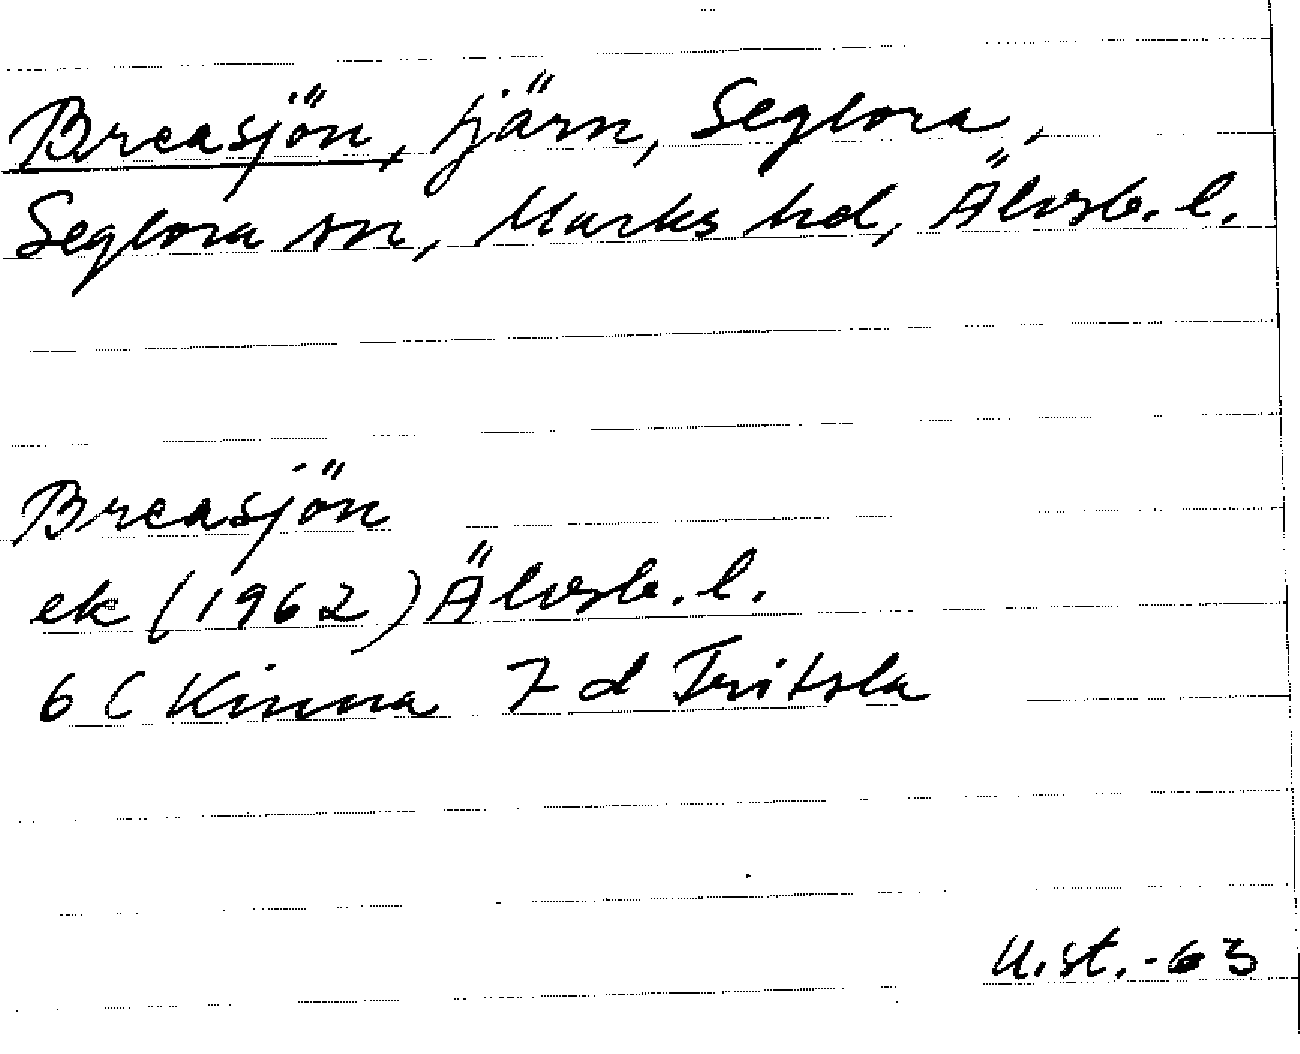 Breasjön, tjärn, Seglora,
Seglora sn, Marks hd, Älvsb. l.
Breasjön
ek (1962) Älvsb. l.
6 C Kinna 7 d Fritsla
U.st. -63